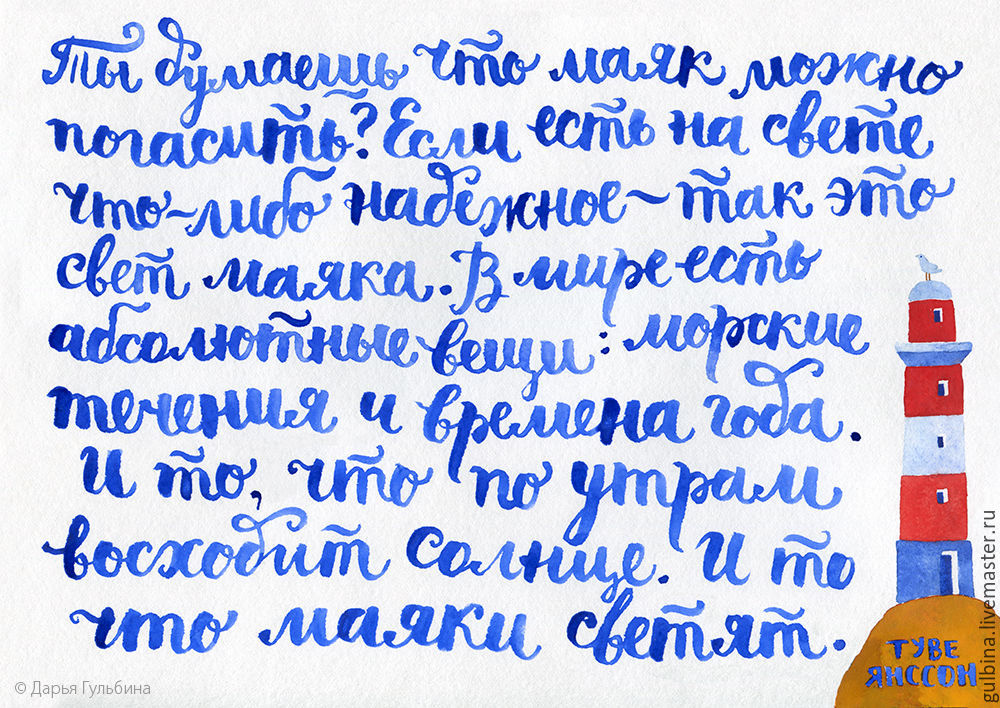 Ты думаешь что маяк можно
погасить? Если есть на свете
что-либо надежное ~ так это
свет маяка. В мире есть
абсолютные вещи: морские
течения и времена года.
И то, что по утрам
восходит солнце. И то
что маяки светят.
ТУВЕ
ЯНССОН
© Дарья Гульбина
gulbina.livemaster.ru